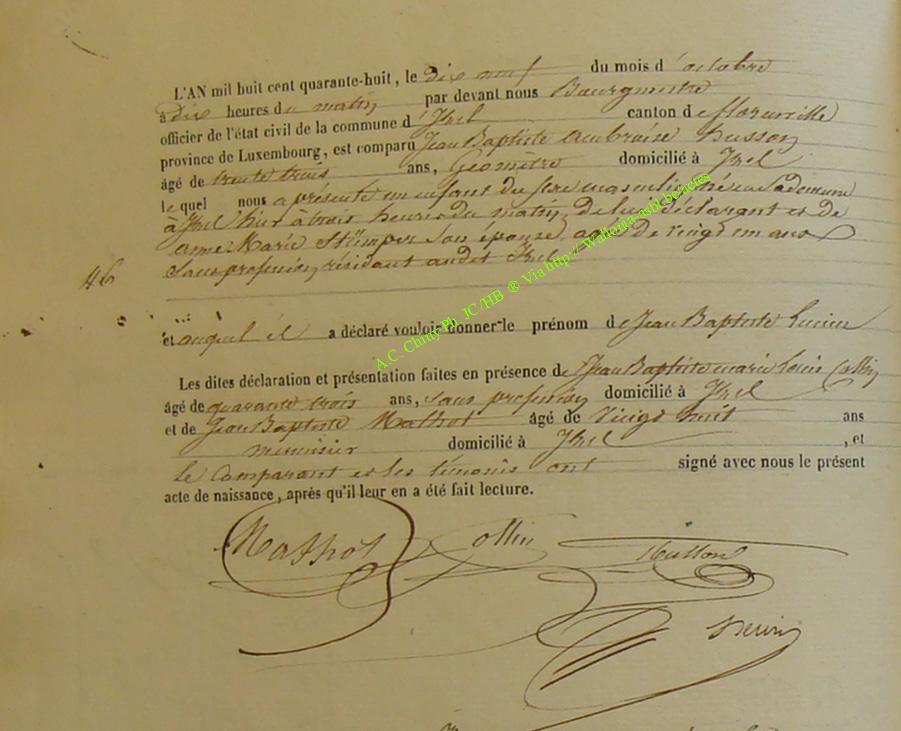 L'AN mil huit cent quarante-huit, le dix neuf du mois d'octobre
à dix heures du matin par devant nous Bourgmestre
officier de l'état civil de la commune d'Izel canton de florenville
province de Luxembourg, est comparu Jean Baptiste Ambroise husson
âgé de trente trois ans, Géomètre domicilié à Izel
lequel nous a présenté un enfant du sexe masculin né en sa demeure
à Izel hier à trois heures du matin, de lui déclarant et de
anne Marie son épouse, agée de vingt un ans
Sans profession, résidant audit Izel
46
et auquel il a déclaré vouloir donner le prénom de Jean Baptiste Lucien
Les dites déclaration et présentation faites en présence de Jean Baptiste marie Louis Collin
âgé de quarante trois ans, sans profession domicilié à Izel
et de Jean Baptiste Mathot âgé de vingt huit ans
menuisier domicilié à Izel, et
le comparant et les témoins ont signé avec nous le présent
acte de naissance, après qu'il leur en a été fait lecture.
Mathot Collin Husson
A.C. Chiny Ph. JC/HB ® Via http://Wallonia.asbl.be/cles